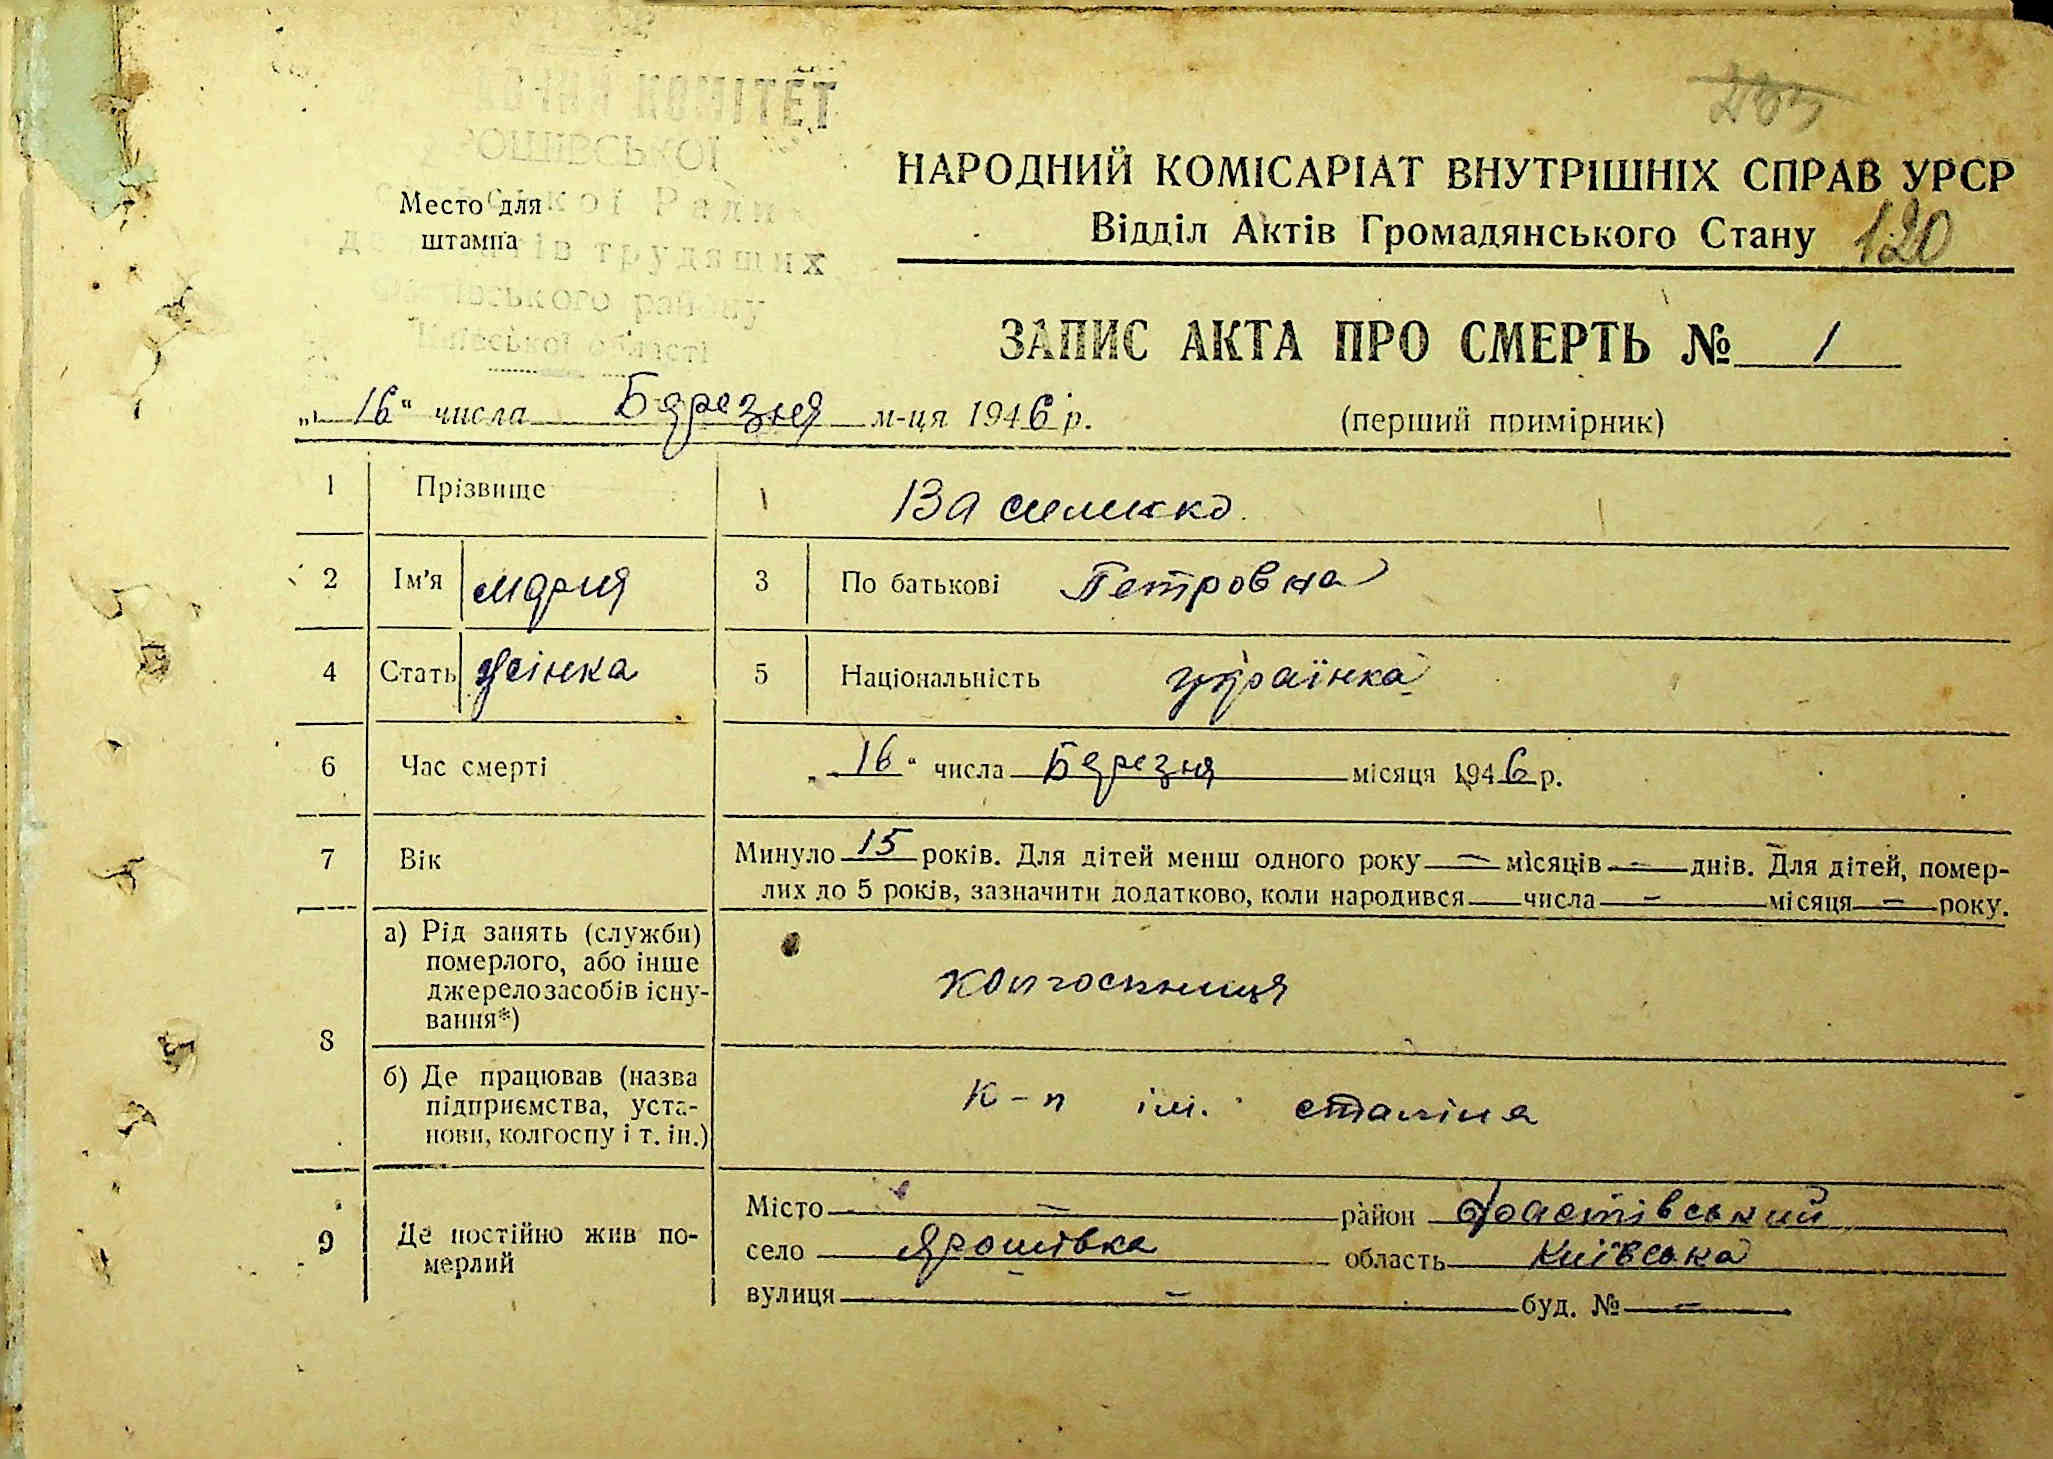 КОМІТЕТ
Место для
штампа
трудящих
району
області
НАРОДНИЙ КОМІСАРІАТ ВНУТРІШНІХ СПРАВ УРСР
Відділ Актів Громадянського Стану 120
ЗАПИС АКТА ПРО СМЕРТЬ № 1
„16“ числа Бярезня м-ця 1946 р. (перший примірник)
1 Прізвище Василико
2 Ім'я Мария 3 По батькові Петровна
4 Стать жінка 5 Національність українка
6 Час смерті „16“ числа Бярезня місяця 1946 р.
7 Вік Минуло 15 років. Для дітей менш одного року — місяців — днів. Для дітей, помер-
лих до 5 років, зазначити додатково, коли народився числа — місяця — року.
8 а) Рід занять (служби)
померлого, або інше
джерело засобів існу-
вання*)
колгоспниця
б) Де працював (назва
підприємства, уста-
нови, колгоспу і т. ін.)
к-п ім. сталіна
9 Де постійно жив по-
мерлий
Місто — район Фастівський
село Ярошівка область Київська
вулиця — буд. № —